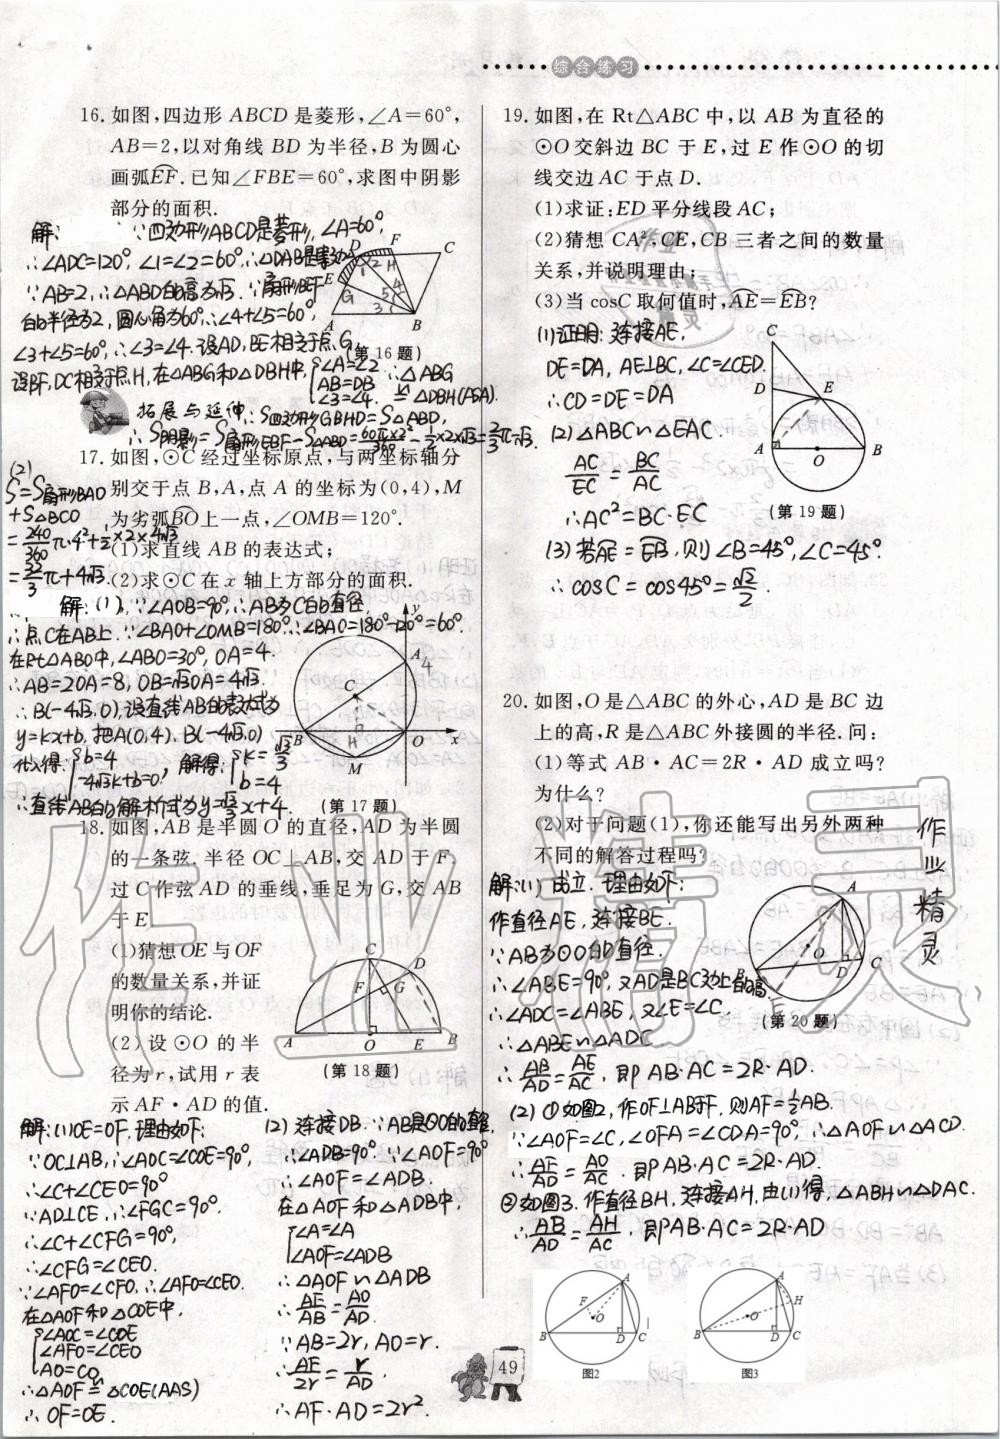 综合练习
16. 如图,四边形 ABCD 是菱形,∠A=60°,
AB=2,以对角线 BD 为半径,B 为圆心
画弧EF. 已知∠FBE=60°,求图中阴影
部分的面积.
解: ∵四边形ABCD是菱形,∠A=60°,
∴∠ADC=120°,∠1=∠2=60°,∴△DAB是
∵AB=2,∴△ABD的高为√3. ∵扇形BEF
的半径为2,圆心角为60°,∴∠4+∠5=60°,
∠3+∠5=60°,∴∠3=∠4.设AD,BE相交于点G,
设BF,DC相交于点H,在△ABG和△DBH中,{∠A=∠2 AB=DB ∠3=∠4. ∴△ABG≌△DBH(ASA).
D F C
E 1 2 H
G 5 4 3
A B
(第 16 题)
拓展与延伸
∴S四边形GBHD=S△ABD,
∴S阴影=S扇形EBF-S△ABD=60π×2²/360-1/2×2×√3=2/3π-√3.
17. 如图,⊙C 经过坐标原点,与两坐标轴分
别交于点 B,A,点 A 的坐标为(0,4),M
为劣弧BO上一点,∠OMB=120°.
(1)求直线 AB 的表达式;
(2)求⊙C 在 x 轴上方部分的面积.
(2)
S=S扇形BAO
+S△BCO
=240/360π·4²+1/2×2×4√3
=32/3π+4√3.
解:(1),∵∠AOB=90°,∴AB为⊙C的直径,
∴点C在AB上.∵∠BAO+∠OMB=180°∴∠BAO=180°-120°=60°.
在Rt△ABO中,∠ABO=30°,OA=4.
∴AB=2OA=8,OB=√3OA=4√3.
∴B(-4√3,0),设直线AB的表达式为
y=kx+b,把A(0,4).B(-4√3,0)
代入得:{b=4 -4√3k+b=0, 解得:{k=√3/3 b=4
∴直线AB的解析式为y=√3/3x+4.
y A 4 C B H O x M
(第 17 题)
18. 如图,AB 是半圆 O 的直径,AD 为半圆
的一条弦. 半径 OC⊥AB,交 AD 于 F,
过 C 作弦 AD 的垂线,垂足为 G,交 AB
于 E.
(1)猜想 OE 与 OF
的数量关系,并证
明你的结论.
(2)设 ⊙O 的半
径为 r,试用 r 表
示 AF·AD 的值.
C D F G A O E B
(第 18 题)
解:(1)OE=OF,理由如下:
∵OC⊥AB,∴∠AOC=∠COE=90°,
∴∠C+∠CEO=90°
∵AD⊥CE,∴∠FGC=90°,
∴∠C+∠CFG=90°,
∴∠CFG=∠CEO.
∵∠AFO=∠CFO,∴∠AFO=∠CEO.
在△AOF和△COE中,
{∠AOC=∠COE
∠AFO=∠CEO
AO=CO,
∴△AOF≌△COE(AAS)
∴OF=OE.
(2)连接DB.∵AB是⊙O的直径,
∴∠ADB=90°.∵∠AOF=90°
∴∠AOF=∠ADB.
在△AOF和△ADB中,
{∠A=∠A
∠AOF=∠ADB
∴△AOF∽△ADB
∴AF/AB=AO/AD
∵AB=2r,AO=r.
∴AF/2r=r/AD.
∴AF·AD=2r².
19. 如图,在 Rt△ABC 中,以 AB 为直径的
⊙O 交斜边 BC 于 E,过 E 作⊙O 的切
线交边 AC 于点 D.
(1)求证:ED 平分线段 AC;
(2)猜想 CA²,CE,CB 三者之间的数量
关系,并说明理由;
(3)当 cosC 取何值时,AE=EB?
(1)证明:连接AE,
DE=DA,AE⊥BC,∠C=∠CED.
∴CD=DE=DA
(2)△ABC∽△EAC.
AC/EC=BC/AC
∴AC²=BC·EC
(3)若AE=EB,则∠B=45°,∠C=45°.
∴cosC=cos45°=√2/2.
C D E A O B
(第 19 题)
20. 如图,O 是△ABC 的外心,AD 是 BC 边
上的高,R 是△ABC 外接圆的半径. 问:
(1)等式 AB·AC=2R·AD 成立吗?
为什么?
(2)对于问题(1),你还能写出另外两种
不同的解答过程吗?
解:(1)成立.理由如下:
作直径AE,连接BE.
∵AB为⊙O的直径.
∴∠ABE=90°,又AD是BC边上的高,
∴∠ADC=∠ABE,又∠E=∠C.
∴△ABE∽△ADC
∴AB/AD=AE/AC,即AB·AC=2R·AD.
(2)①如图2,作OF⊥AB于F,则AF=1/2AB.
∵∠AOF=∠C,∠OFA=∠CDA=90°,∴△AOF∽△ACD.
∴AF/AD=AO/AC.即AB·AC=2R·AD.
②如图3.作直径BH,连接AH,由(1)得,△ABH∽△DAC.
∴AB/AD=AH/AC,即AB·AC=2R·AD
A O B D C E
(第 20 题)
作业精灵
A F O B D C
图2
A H O B D C
图3
49
作业精灵